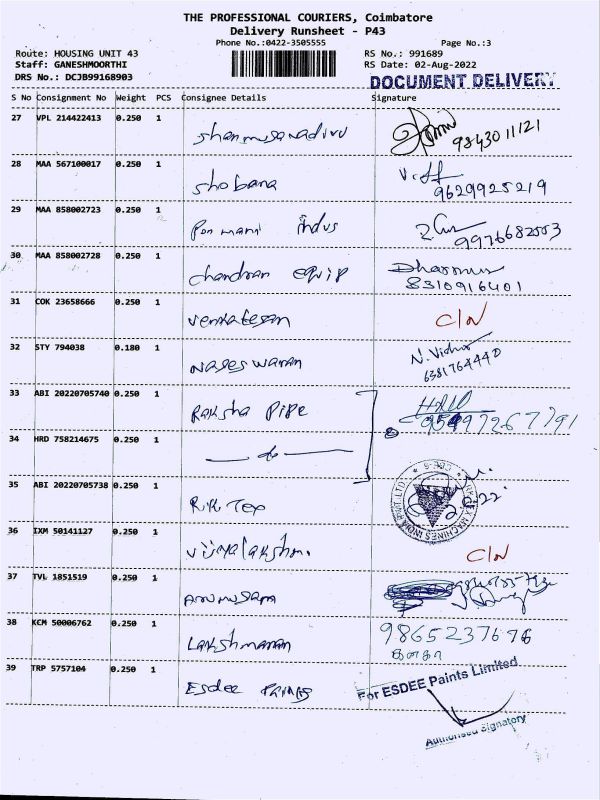 THE PROFESSIONAL COURIERS, Coimbatore
Delivery Runsheet - P43
Phone No.:0422-3505555 Page No.:3
Route: HOUSING UNIT 43 RS No.: 991689
Staff: GANESHMOORTHI RS Date: 02-Aug-2022
DRS No.: DCJB99168903 DOCUMENT DELIVERY
S No Consignment No Weight PCS Consignee Details Signature
27 VPL 214422413 0.250 1 9843011121
28 MAA 567100017 0.250 1 Shobana 9629925219
29 MAA 858002723 0.250 1 Pon mani indus 9976682553
30 MAA 858002728 0.250 1 chandran equip
8310916401
31 COK 23658666 0.250 1 venkatesan C/N
32 STY 794038 0.180 1 Nageswaran N. Vidhu
6381764440
33 ABI 20220705740 0.250 1 Raksha Pipe
34 HRD 758214675 0.250 1 — do —
35 ABI 20220705738 0.250 1 R.K Tex
36 IXM 50141127 0.250 1 vijayalakshmi C/N
37 TVL 1851519 0.250 1 Arumugam
38 KCM 50006762 0.250 1 Lakshmanan 9865237676
39 TRP 5757104 0.250 1 Esdee Paints For ESDEE Paints Limited
Authorised Signatory